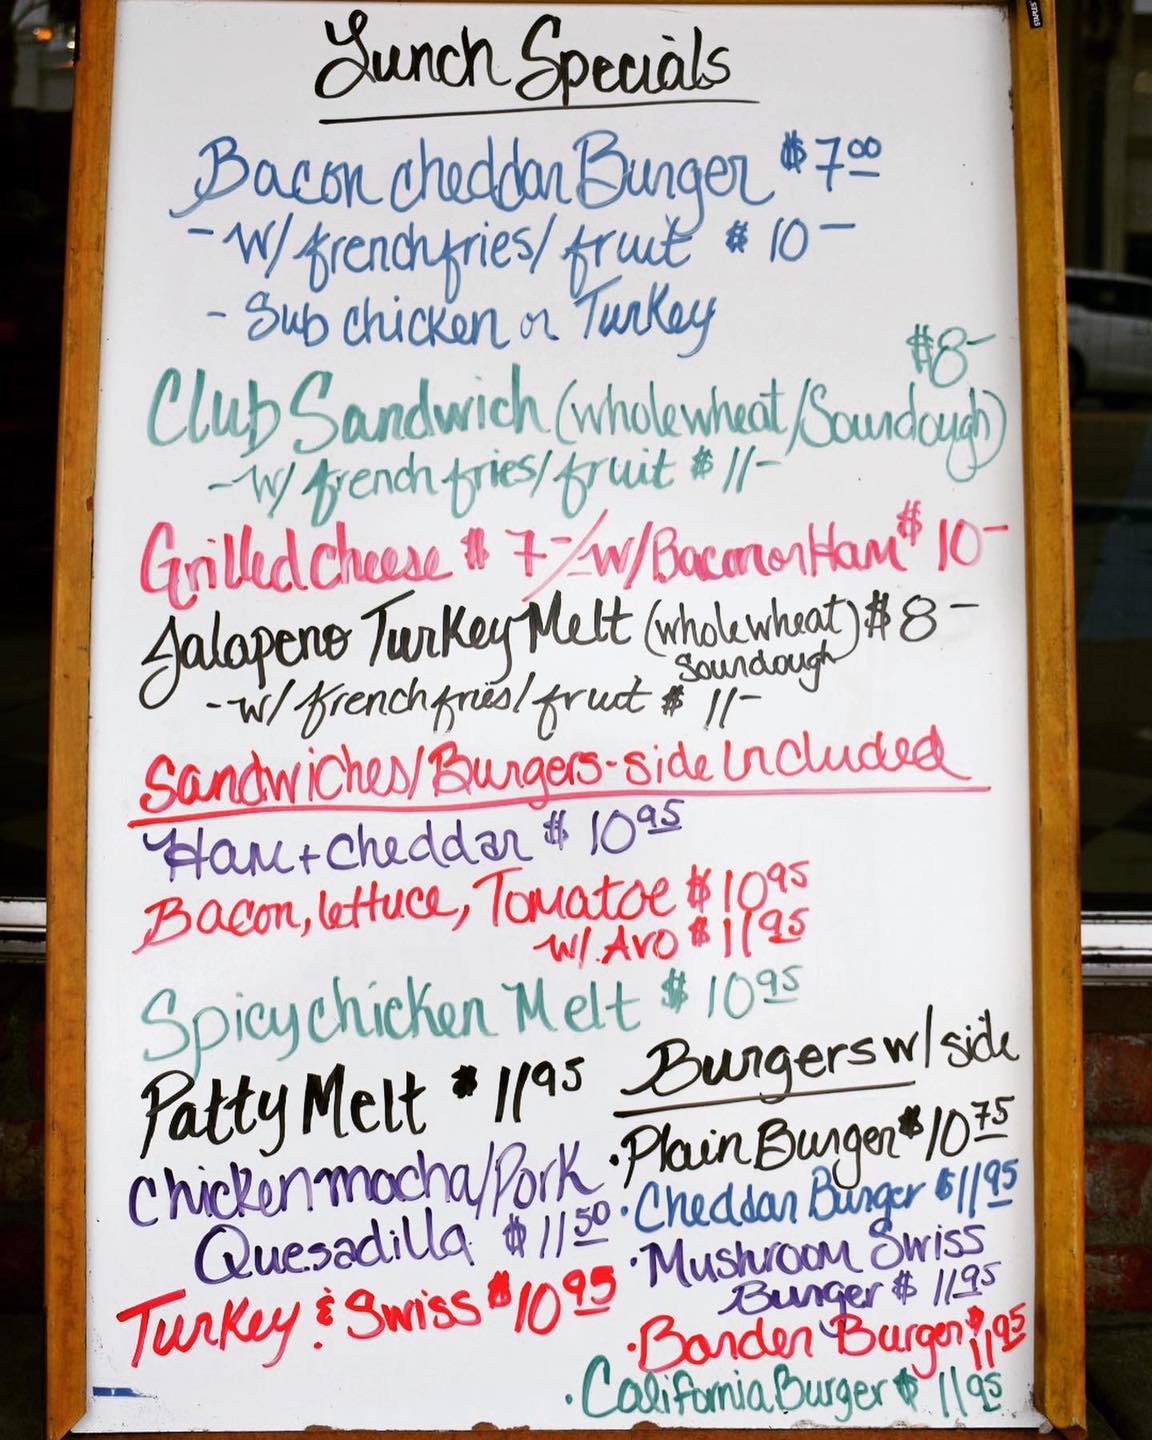 Lunch Specials
Bacon cheddar Burger $7.00
- w/ french fries/ fruit $10-
- Sub chicken or Turkey
$8-
Club Sandwich (whole wheat/Sourdough)
- w/ french fries/ fruit $11-
Grilled cheese $7-/-w/Bacon or Ham $10-
Jalapeno Turkey Melt (whole wheat) $8-
Sourdough
- w/ french fries/ fruit $11-
Sandwiches/Burgers-side Included
Ham + cheddar $10.95
Bacon, lettuce, Tomatoe $10.95
w/. Avo $11.95
Spicy chicken Melt $10.95
Patty Melt $11.95
Chicken mocha/Pork
Quesadilla $11.50
Turkey & Swiss $10.95
Burgers w/ side
·Plain Burger $10.75
·Cheddar Burger $11.95
·Mushroom Swiss
Burger $11.95
·Border Burger $11.95
·California Burger $11.95
STAPLES